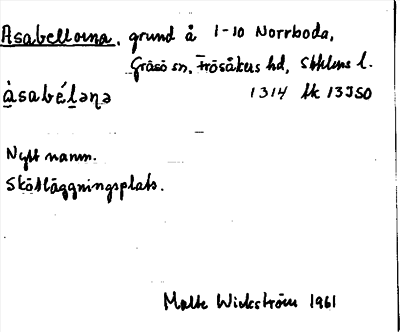 Asabellorna, grund å 1-10 Norrboda,
Gräsö sn, Frösåkers hd, Sthlms l.
àsabéləṇə 1314 tk 13I SO
Nytt namn.
Skötläggningsplats.
Malte Wickström 1961